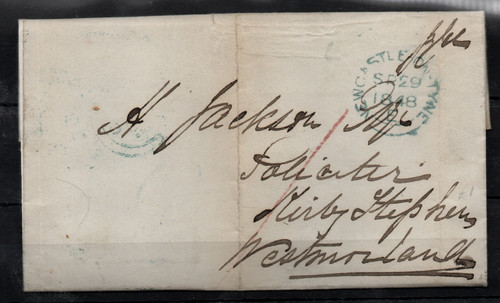 NEWCASTLE-ON-TYNE
SP 29
1848
A Jackson Esqr
Soliciter
Kirby Stephen
Westmorland